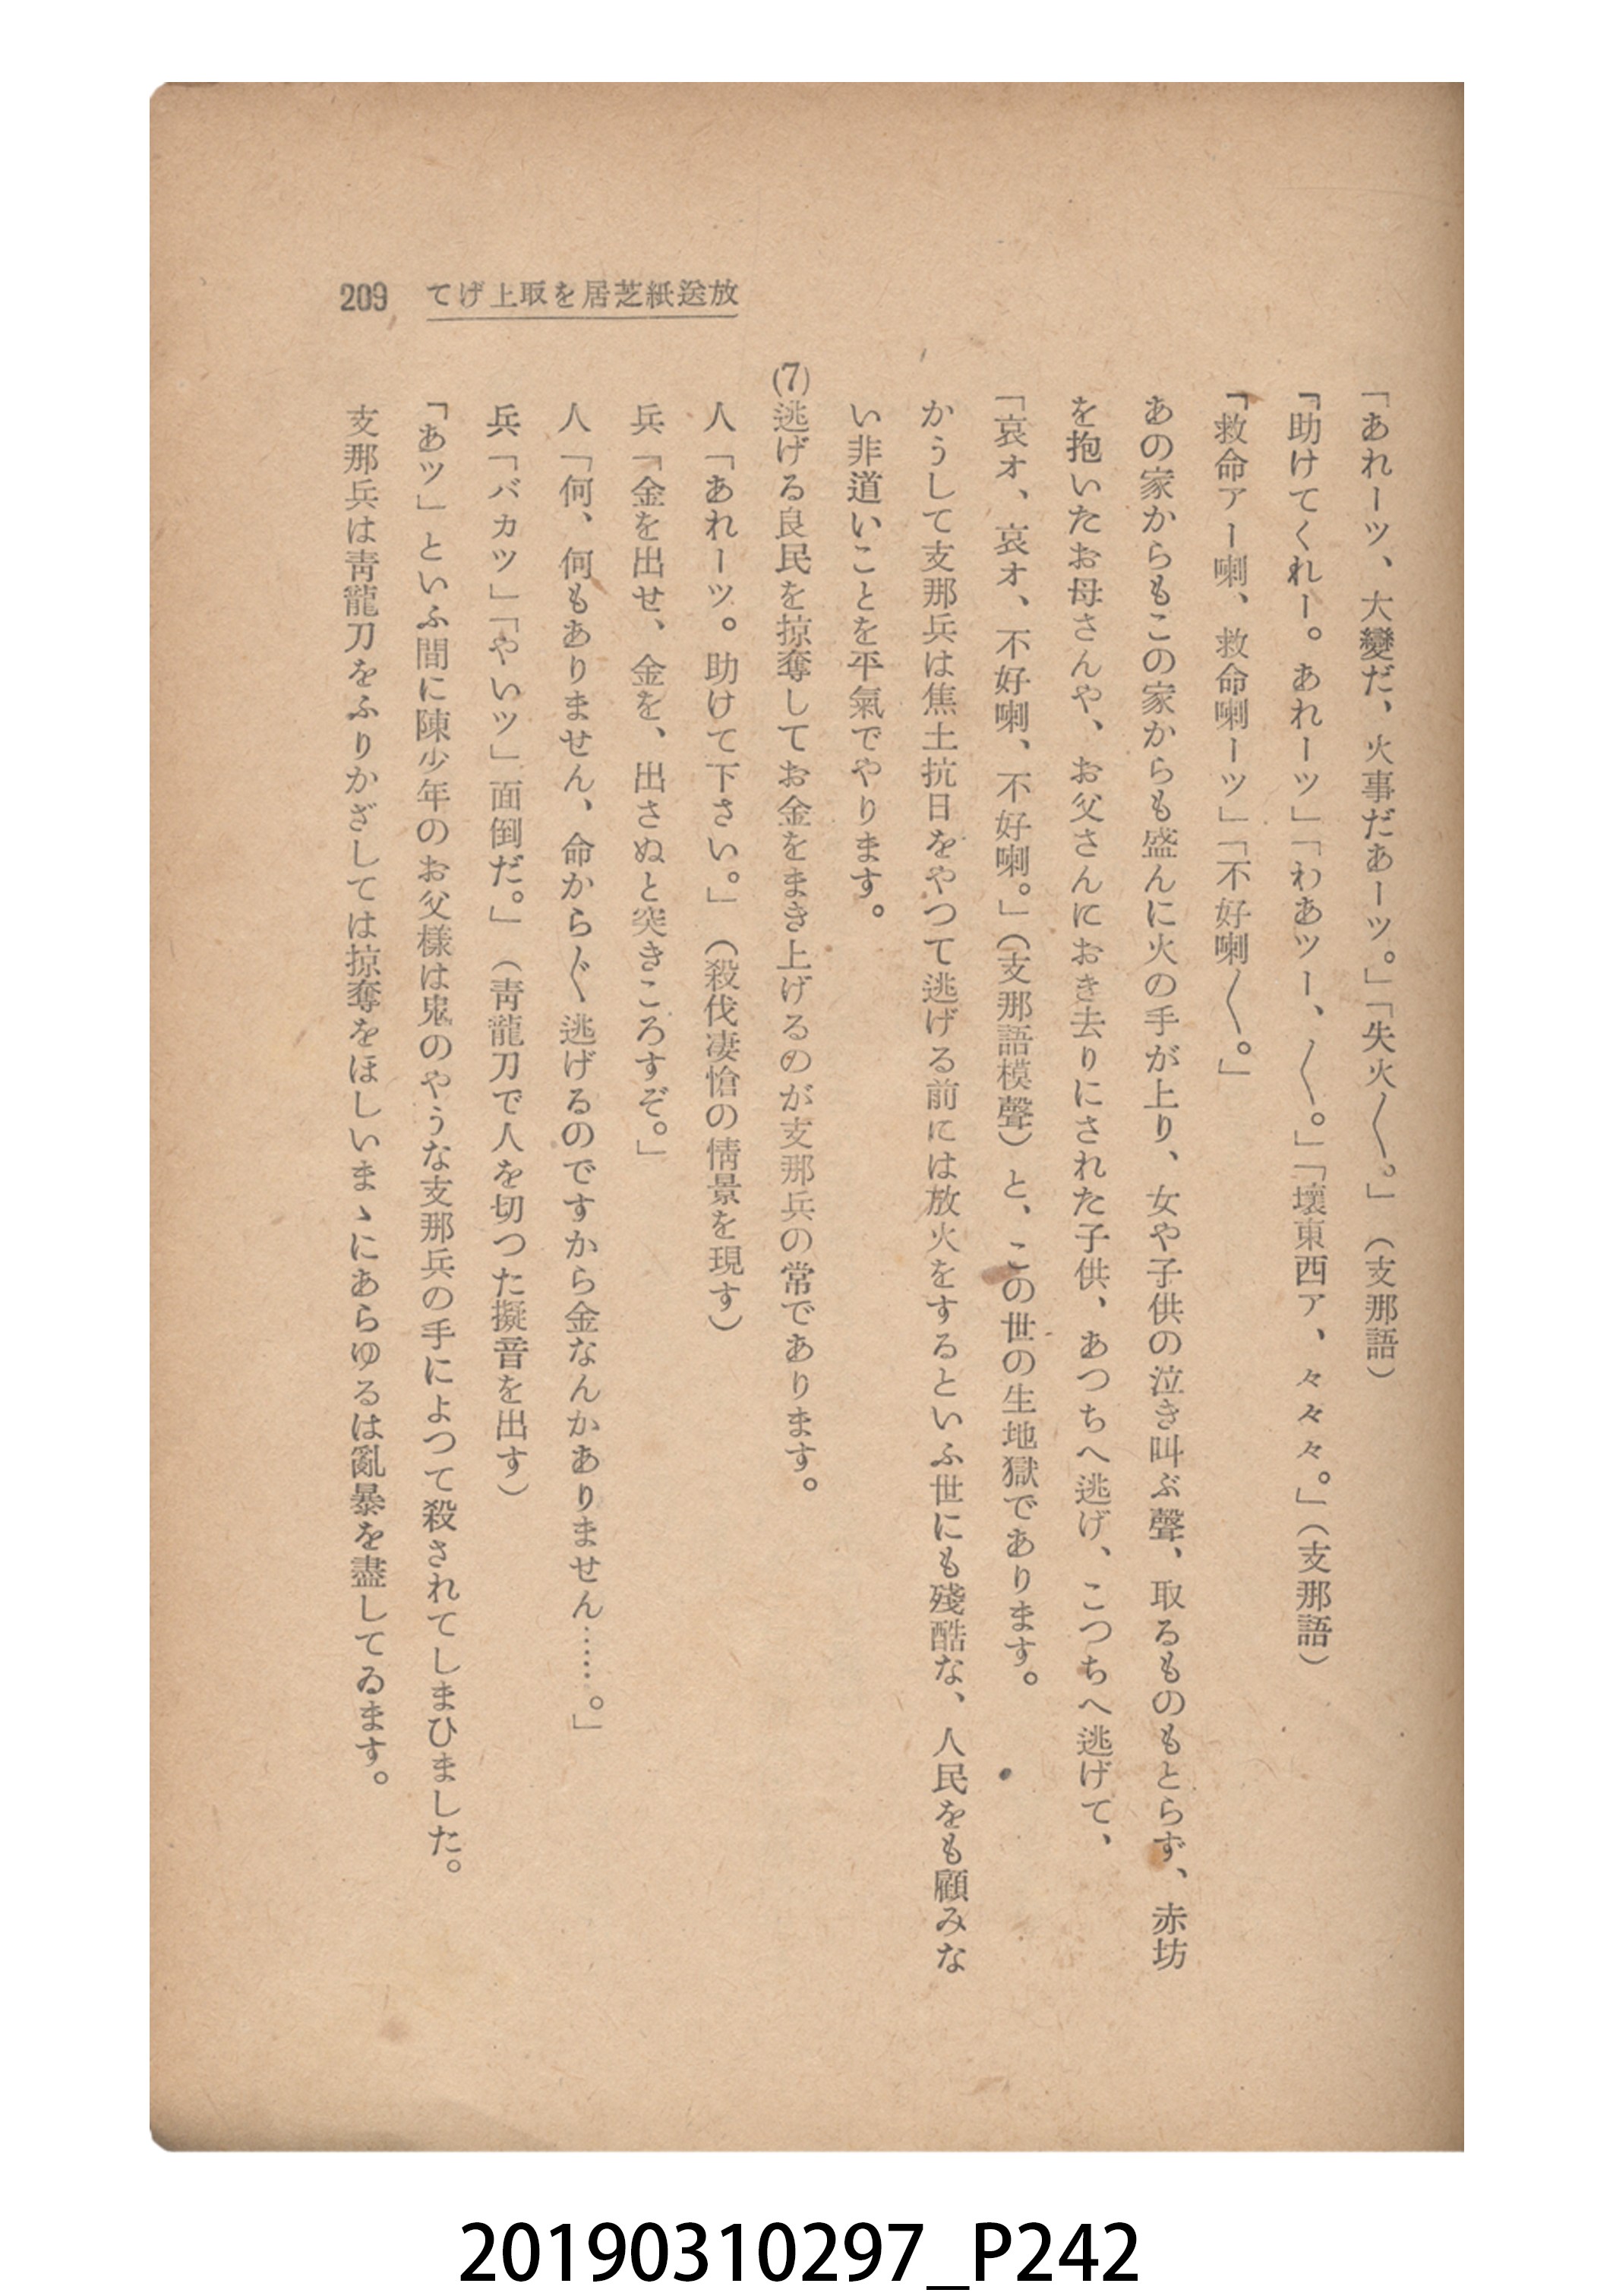 てげ上取を居芝紙送放
209
「あれーツ、大變だ、火事だあーツ。」「失火〱。」（支那語）
「助けてくれー。あれーツ」「わあツー、〱。」「壞東西ア、々々々。」（支那語）
「救命アー喇、救命喇ーツ」「不好喇〱。」
あの家からもこの家からも盛んに火の手が上り、女や子供の泣き叫ぶ聲、取るものもとらず、赤坊
を抱いたお母さんや、お父さんにおき去りにされた子供、あつちへ逃げ、こつちへ逃げて、
「哀オ、哀オ、不好喇、不好喇。」（支那語模聲）と、この世の生地獄であります。
かうして支那兵は焦土抗日をやつて逃げる前には放火をするといふ世にも殘酷な、人民をも顧みな
い非道いことを平氣でやります。
(7)逃げる良民を掠奪してお金をまき上げるのが支那兵の常であります。
人「あれーツ。助けて下さい。」（殺伐凄愴の情景を現す）
兵「金を出せ、金を、出さぬと突きころすぞ。」
人「何、何もありません、命から〲逃げるのですから金なんかありません……。」
兵「バカツ」「やいツ」面倒だ。」（靑龍刀で人を切つた擬音を出す）
「あツ」といふ間に陳少年のお父樣は鬼のやうな支那兵の手によつて殺されてしまひました。
支那兵は靑龍刀をふりかざしては掠奪をほしいまゝにあらゆるは亂暴を盡してゐます。
20190310297_P242